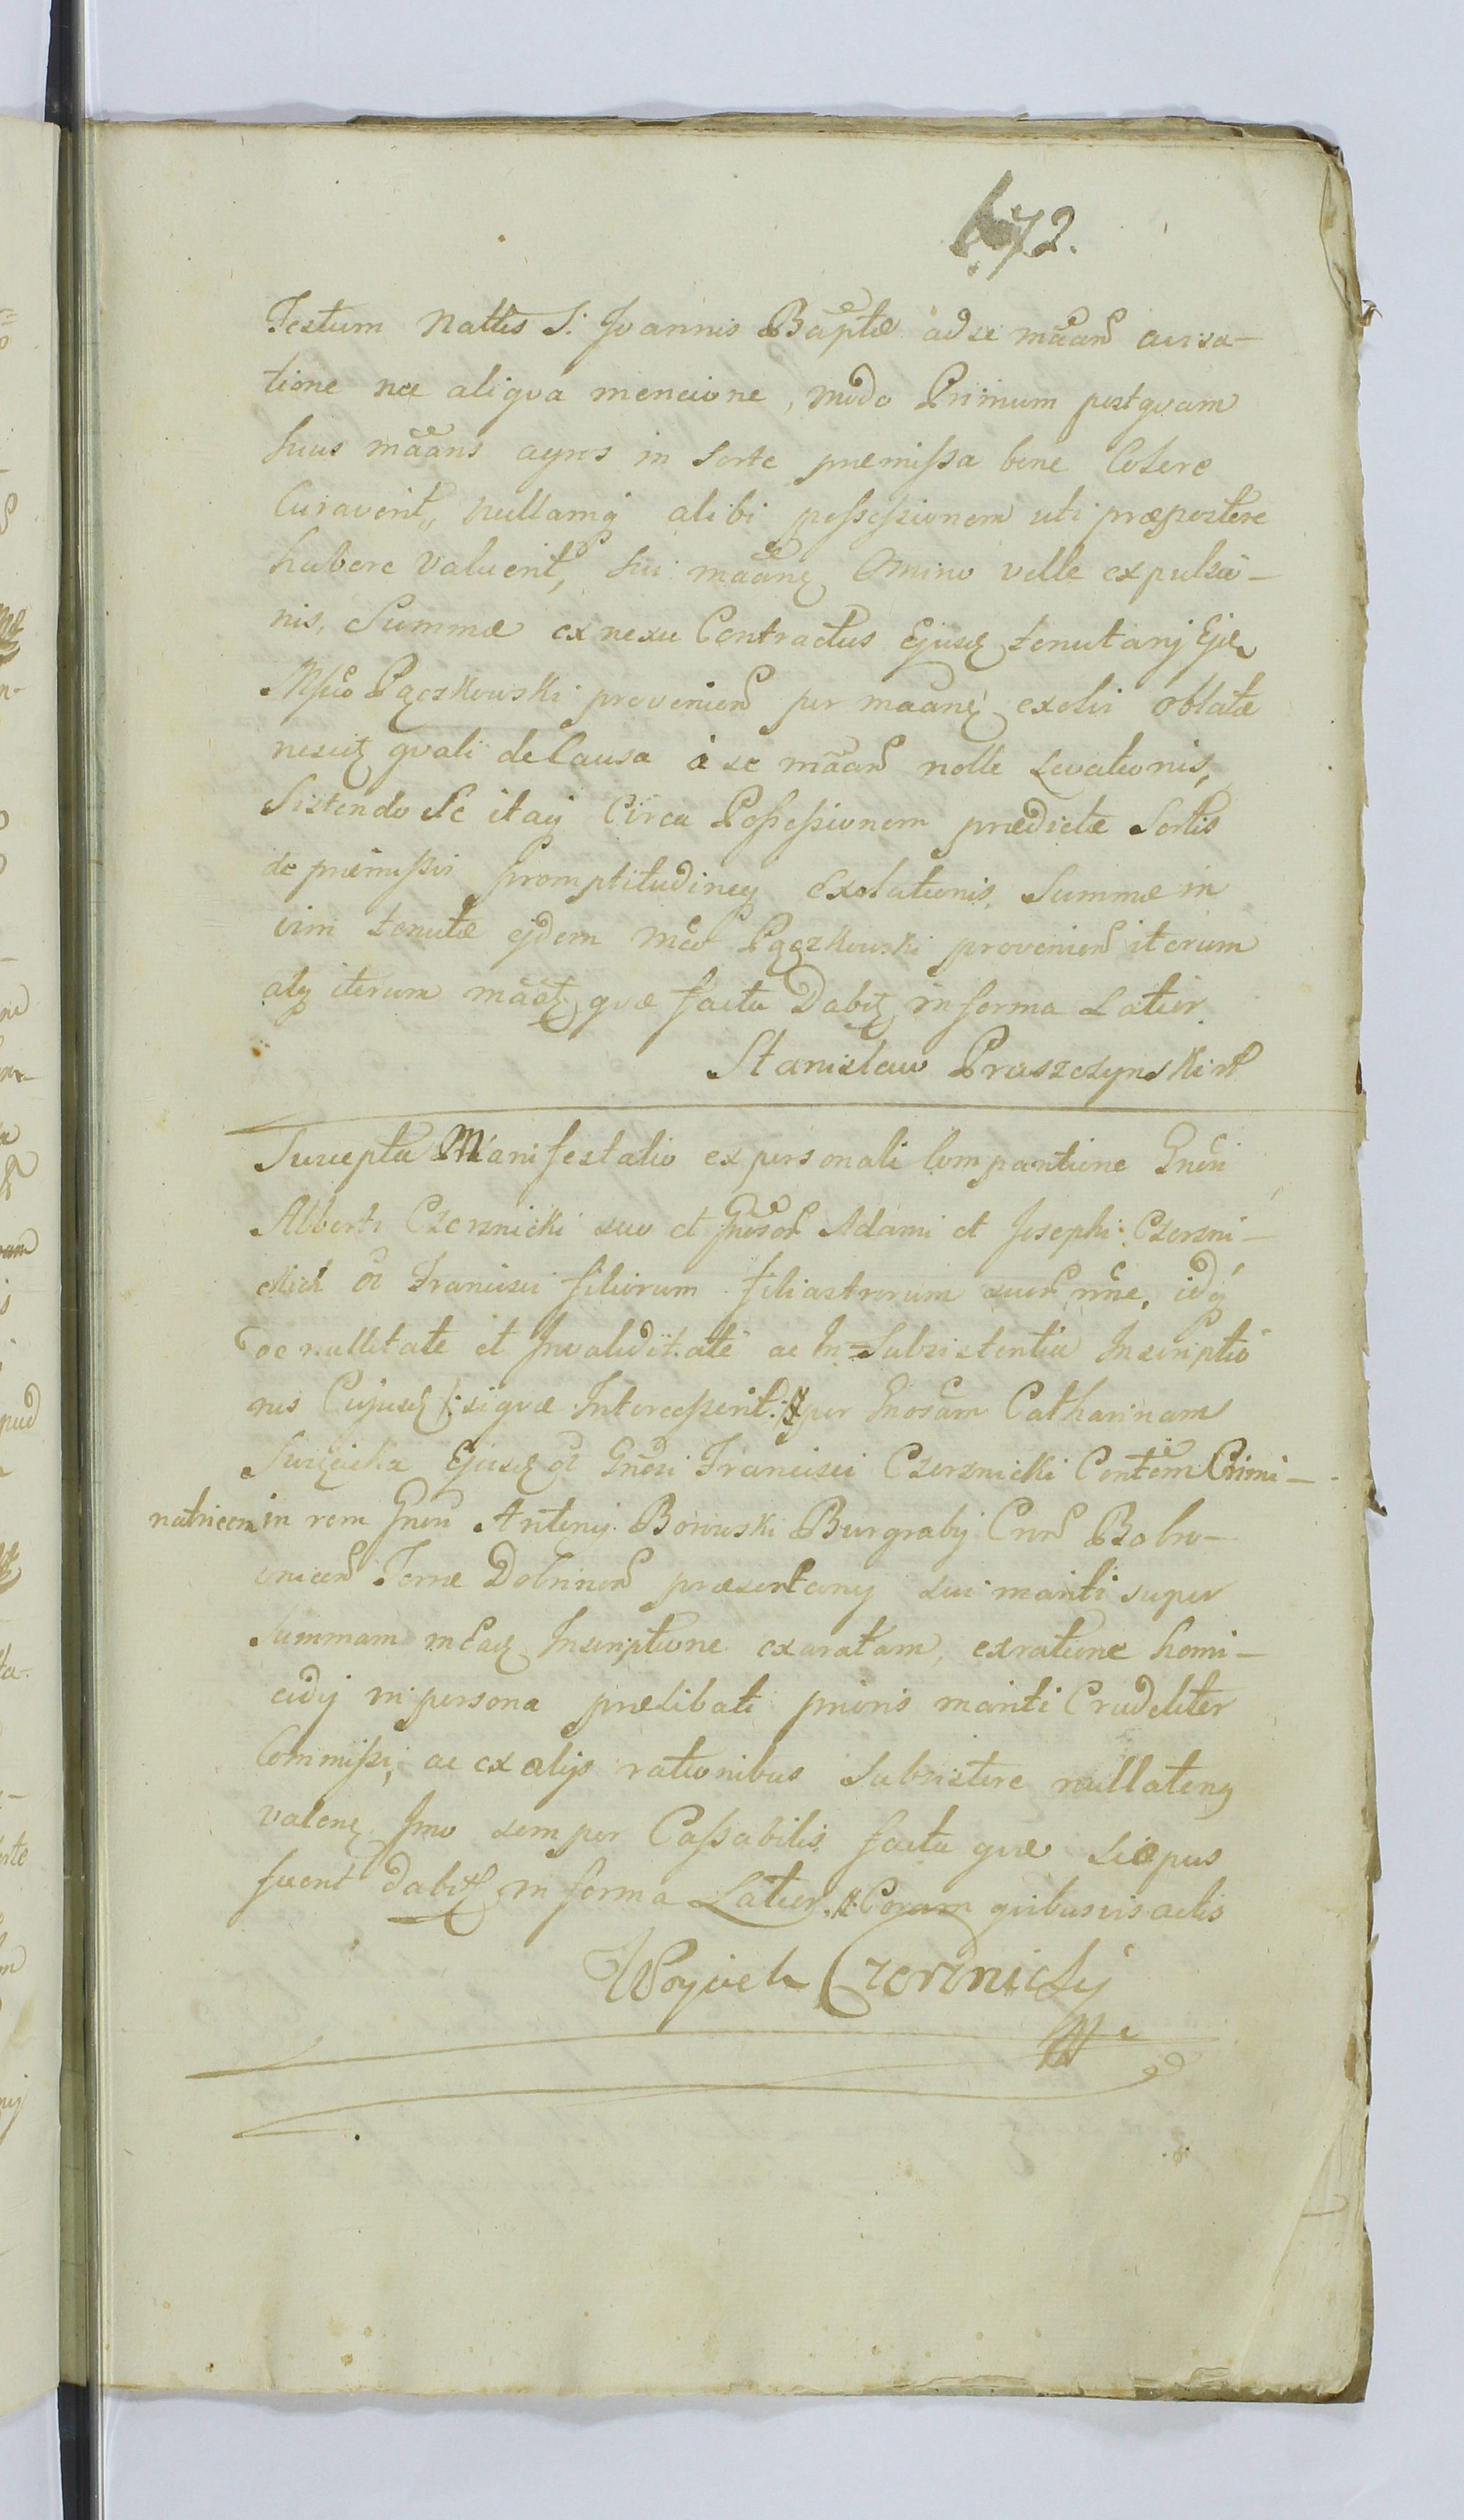 672.
Festum Nattis S: Joannis Baptæ ad se mãan avisa—
tione nec aliqva mencione, modo Primum postqvam
suus mããns agros in Sorte præmissa bene Colere
Curaverit, nullamq alibi possessionem uti præpostere
habere valuerit, sui mããne Omnino velle expulsio—
nis, Summæ ex nexu Contractus Ejusd tenutarij
Mfco Pączkowski provenien per maane exolvi oblatæ
nescit qvali de Causa à se mããn nolle levationis,
Sistendo Se itaq Circa Possessionem prædictæ Sortis
de præmissis promptitudineq Exolutionis Summæ in
vim tenutæ ejdem Mco Pączkowski provenien iterum
atq iterum mããt, qvæ facta Dabit in forma Latior
Stanislaw Pruszczynski
Suscepta Manifestatio ex personali Comparitione Gnosi
Alberti Czersnicki suo et Gnosor Adami et Josephi Czersni—
ckich ac Francisci filiorum filiastrorum suor nne, idq
de nullitate et Invaliditate ac In=Subsistentia Inscriptio
nis Cujusd /: si qvæ Intercesserit :/ per Gnosam Catharinam
Ejusd ol Gnosi Francisci Czersnicki Contem Crimi—
natricem in rem Gnosi Antonij Borowski Burgrabij Crn Bobro—
vnicen Terræ Dobrinen præsentanq sui mariti super
Summam in eadz Inscriptione exaratam, ex ratione homi—
cidij in persona prælibati prioris mariti Crudeliter
Commissi, ac ex alijs rationibus Subsistere nullatenq
valens, Imo semper Cassabilis, facta qvæ si opus
fuerit dabit in forma Latior, Coram qvibusvis actis
Woyciech Czerznicky